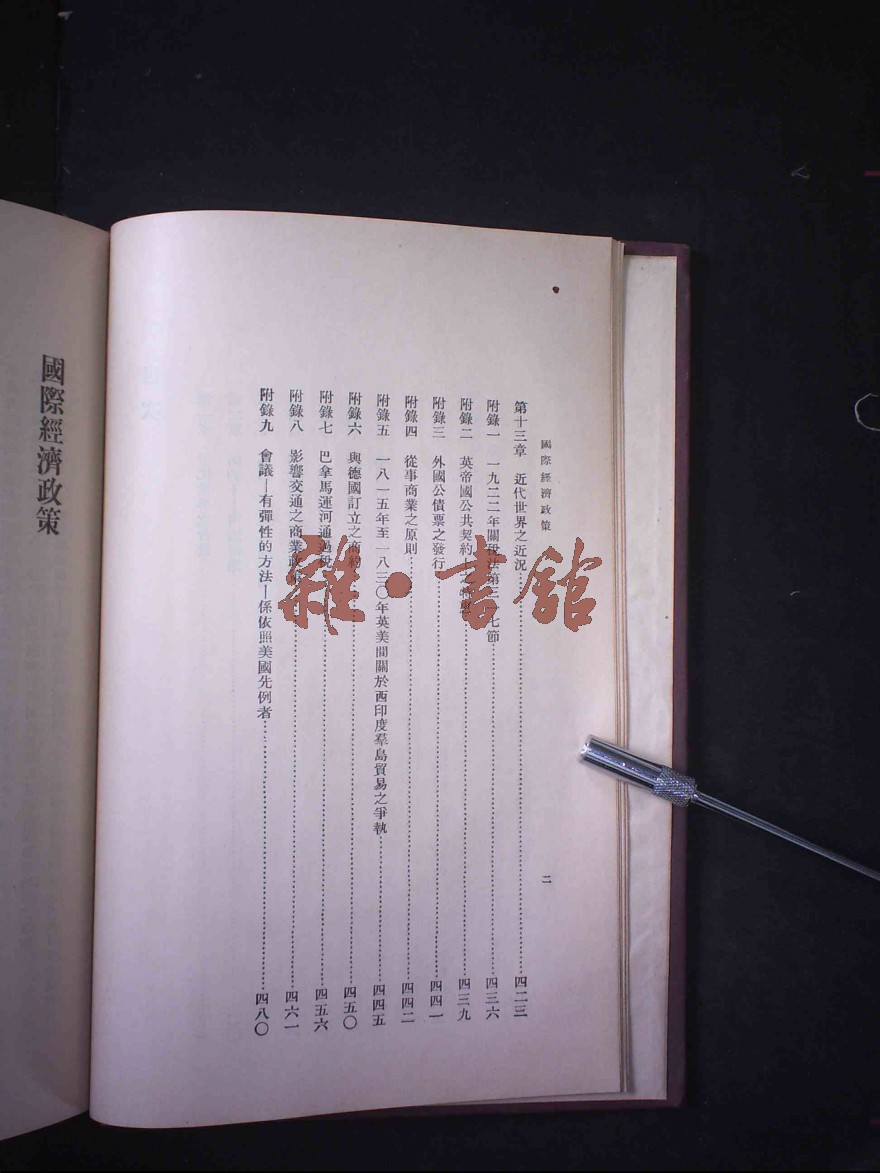 國際經濟政策
二
第十三章 近代世界之近況……四二三
附錄一 一九二二年關稅法第三 七節……四三六
附錄二 英帝國公共契約上之特惠……四三九
附錄三 外國公債票之發行……四四一
附錄四 從事商業之原則……四四二
附錄五 一八一五年至一八三〇年英美間關於西印度羣島貿易之爭執……四四五
附錄六 與德國訂立之商約……四五〇
附錄七 巴拿馬運河通過稅……四五六
附錄八 影響交通之商業政策……四六一
附錄九 會議—有彈性的方法—係依照美國先例者……四八〇
國際經濟政策
雜·書館